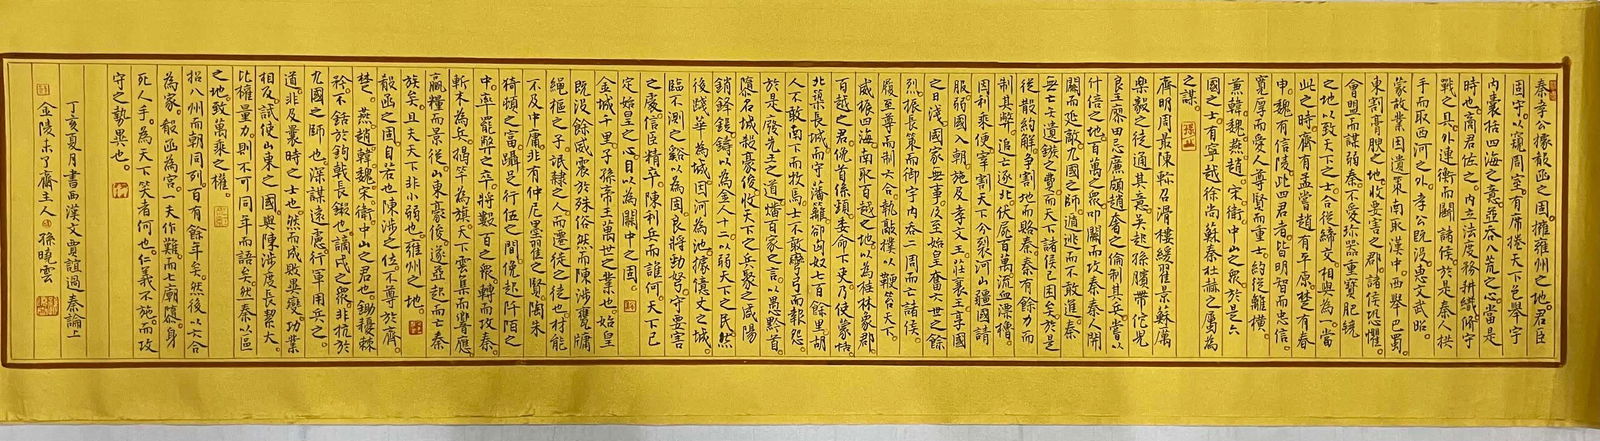 秦孝公據殽函之固。擁雍州之地。君臣
固守。以窺周室。有席捲天下。包舉宇
內。囊括四海之意。并吞八荒之心。當是
時也。商君佐之。內立法度。務耕織。脩守
戰之具。外連衡而鬬諸侯。於是秦人拱
手而取西河之外。孝公既沒。惠文武昭
蒙故業。因遺策。南取漢中。西舉巴蜀。
東割膏腴之地。收要害之郡。諸侯恐懼。
會盟而謀弱秦。不愛珍器重寶肥饒
之地。以致天下之士。合從締交。相與為一。當
此之時。齊有孟嘗。趙有平原。楚有春
申。魏有信陵。此四君者。皆明智而忠信。
寬厚而愛人。尊賢而重士。約從離橫。
兼韓魏燕趙宋衛中山之衆。於是六
國之士。有寧越徐尚蘇秦杜赫之屬為
之謀。
齊明周最陳軫召滑樓緩翟景蘇厲
樂毅之徒通其意。吳起孫臏帶佗兒
良王廖田忌廉頗趙奢之倫制其兵。嘗以
什倍之地。百萬之衆。叩關而攻秦。秦人開
關而延敵。九國之師。遁逃而不敢進。秦
無亡矢遺鏃之費。而天下諸侯已困矣。於是
從散約解。爭割地而賂秦。秦有餘力而
制其弊。追亡逐北。伏屍百萬。流血漂櫓。
因利乘便。宰割天下。分裂河山。彊國請
服。弱國入朝。施及孝文王。莊襄王。享國
之日淺。國家無事。及至始皇。奮六世之餘
烈。振長策而御宇內。吞二周而亡諸侯。
履至尊而制六合。執敲撲以鞭笞天下。
威振四海。南取百越之地。以為桂林象郡。
百越之君。俛首係頸。委命下吏。乃使蒙恬
北築長城而守藩籬。卻匈奴七百餘里。胡
人不敢南下而牧馬。士不敢彎弓而報怨。
於是廢先王之道。燔百家之言。以愚黔首。
隳名城。殺豪俊。收天下之兵。聚之咸陽。
銷鋒鍉。鑄以為金人十二。以弱天下之民。然
後踐華為城。因河為池。據億丈之城。
臨不測之谿以為固。良將勁弩。守要害
之處。信臣精卒。陳利兵而誰何。天下已
定。始皇之心。自以為關中之固。
金城千里。子孫帝王。萬世之業也。始皇
既沒。餘威震於殊俗。然而陳涉甕牖
繩樞之子。氓隸之人。而遷徙之徒也。材能
不及中庸。非有仲尼墨翟之賢。陶朱
猗頓之富。躡足行伍之間。俛起阡陌之
中。率罷弊之卒。將數百之衆。轉而攻秦。
斬木為兵。揭竿為旗。天下雲集而響應。
贏糧而景從。山東豪俊。遂並起而亡秦
族矣。且夫天下非小弱也。雍州之地。
殽函之固。自若也。陳涉之位。不尊於齊
楚燕趙韓魏宋衛中山之君也。鋤耰棘
矜。不銛於鉤戟長鎩也。謫戍之衆。非抗於
九國之師也。深謀遠慮。行軍用兵之
道。非及曩時之士也。然而成敗異變。功業
相反。試使山東之國。與陳涉度長絜大。
比權量力。則不可同年而語矣。然秦以區區
之地。致萬乘之權。
招八州而朝同列。百有餘年矣。然後以六合
為家。殽函為宮。一夫作難。而七廟隳。身
死人手。為天下笑者。何也。仁義不施。而攻
守之勢異也。
丁亥夏月書西漢文賈誼過秦論上
金陵未了齋主人 孫曉雲